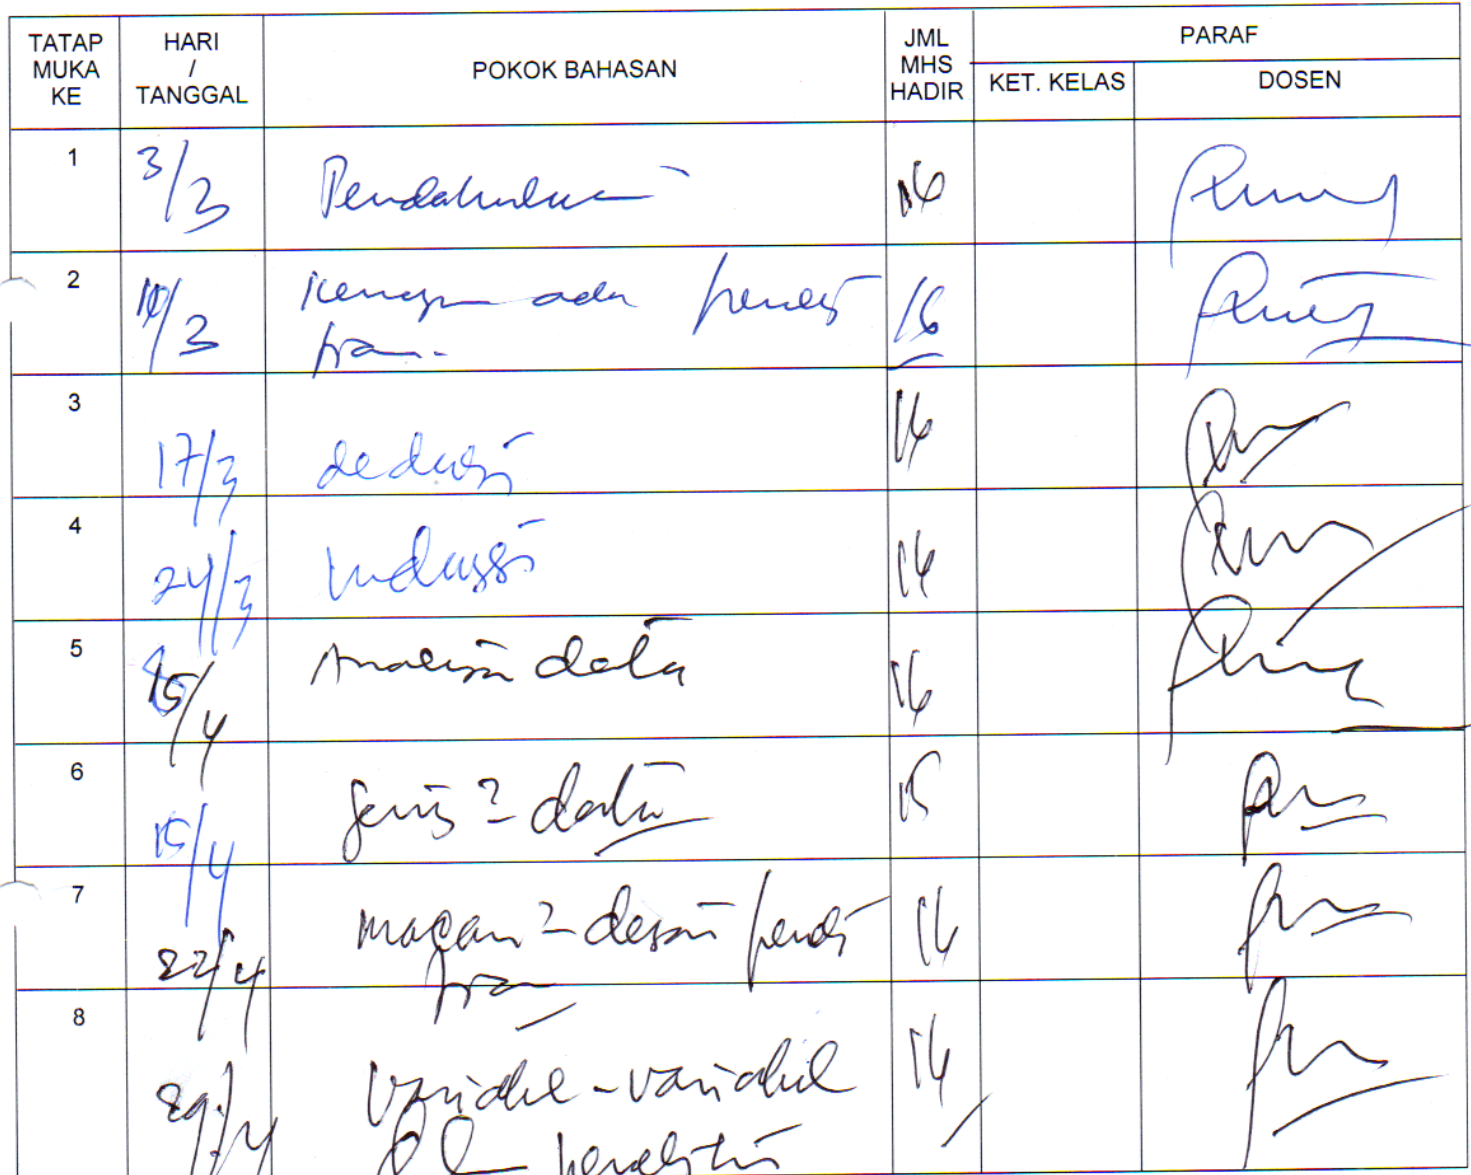 TATAP MUKA KE HARI / TANGGAL POKOK BAHASAN JML MHS HADIR PARAF
KET. KELAS DOSEN
1 3/3 Pendahuluan 16
2 10/3 ada 16
3 17/3 deduksi 16
4 24/3 Induksi 16
5 15/4 Analisa data 16
6 15/4 Jenis2 data 15
7 22/4 macam2 desain peneli 16
tian
8 29/4 Variabel - variabel 16
penelitian